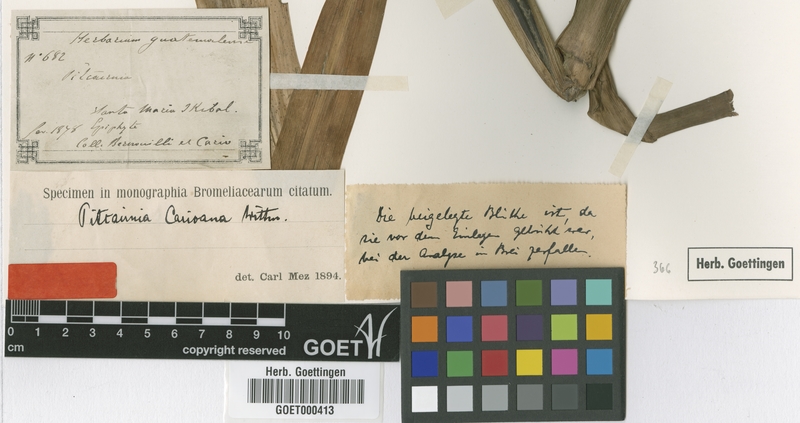 Herbarium guatemalense
N° 682
Pitcairnia
Santa Maria Ixkal.
Jan. 1878 Epiphyte
Coll. Bernouilli et Cario
Specimen in monographia Bromeliacearum citatum.
Pitcairnia Carioana Wittm.
det. Carl Mez 1894.
Die beigelegte Blüthe ist, da
sie vor dem Einlegen gebrüht war,
bei der Analyse in Brei zerfallen.
366
Herb. Goettingen
0 1 2 3 4 5 6 7 8 9 10
cm
copyright reserved
GOET
Herb. Goettingen
GOET000413